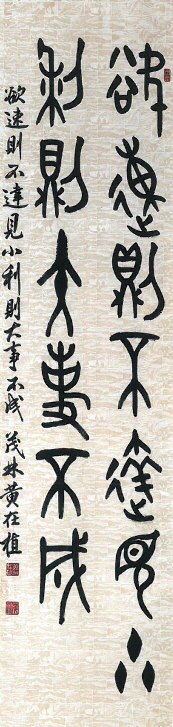 欲速則不達見小
利則大事不成
欲速則不達見小利則大事不成 茂林黃在植